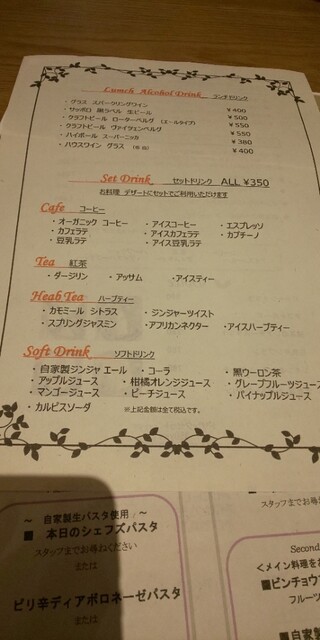 Lunch Alcohol Drink ランチドリンク
・グラス スパークリングワイン ¥400
・サッポロ 黒ラベル 生ビール ¥500
・クラフトビール ローターベルグ (エールタイプ) ¥550
・クラフトビール ヴァイツェンベルグ ¥550
・ハイボール スーパーニッカ ¥380
・ハウスワイン グラス ¥400
Set Drink セットドリンク ALL ¥350
お料理 デザートにセットでご利用いただけます
Cafe コーヒー
・オーガニック コーヒー ・アイスコーヒー ・エスプレッソ
・カフェラテ ・アイスカフェラテ ・カプチーノ
・豆乳ラテ ・アイス豆乳ラテ
Tea 紅茶
・ダージリン ・アッサム ・アイスティー
Heab Tea ハーブティー
・カモミール シトラス ・ジンジャーツイスト
・スプリングジャスミン ・アフリカンネクター ・アイスハーブティー
Soft Drink ソフトドリンク
・自家製ジンジャエール ・コーラ ・黒ウーロン茶
・アップルジュース ・柑橘オレンジジュース ・グレープフルーツジュース
・マンゴージュース ・ピーチジュース ・パイナップルジュース
・カルピスソーダ ※上記金額は全て税込です。
～ 自家製生パスタ使用 ～
■ 本日のシェフズパスタ
スタッフまでお尋ねください
または
ピリ辛ディアボロネーゼパスタ
または
スタッフまで
Second
<メイン料理を
■ピンチョウ
フルーツ
または
■自家製